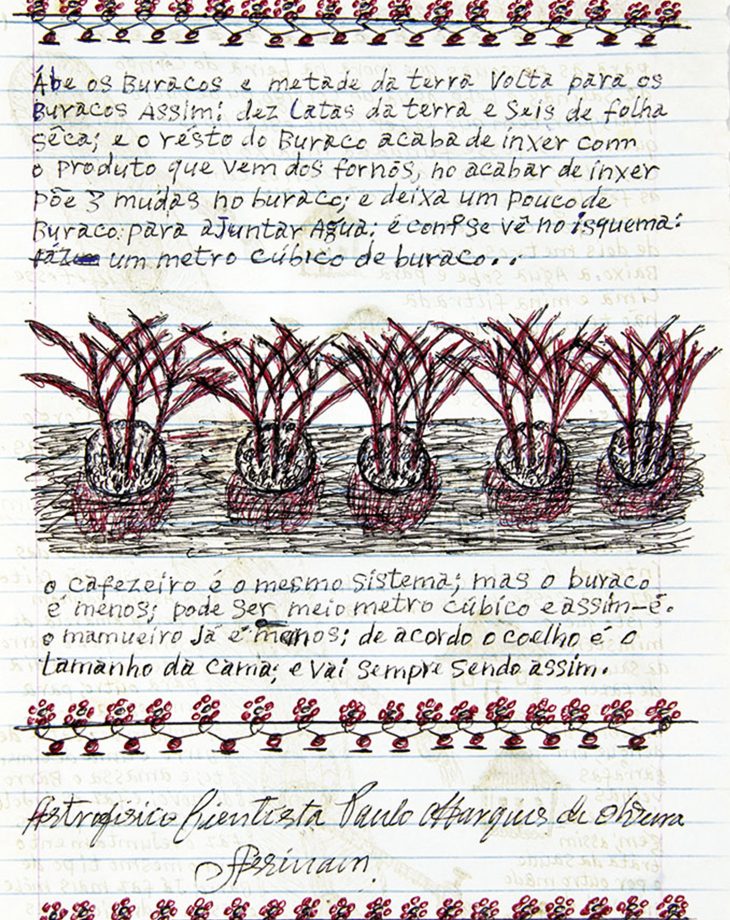 Ábe os Buracos e metade da terra Volta para os
Buracos Assim: dez Latas da terra e Seis de folha
sêca; e o résto do Buraco acaba de inxer com
o produto que vem dos fornos, no acabar de inxer
põe 3 mudas no buraco; e deixa um pouco de
Buraco para aJuntar Água; é conf se vê no isquema:
um metro cúbico de buraco..
o cafezeiro é o mesmo sistema; mas o buraco
é menos; pode ser meio metro cúbico e assim-é.
o mamueiro Já é menos; de acordo o coelho é o
tamanho da cama; e vai sempre sendo assim.
Astrofisico Cientista Paulo Marques de Oliveira